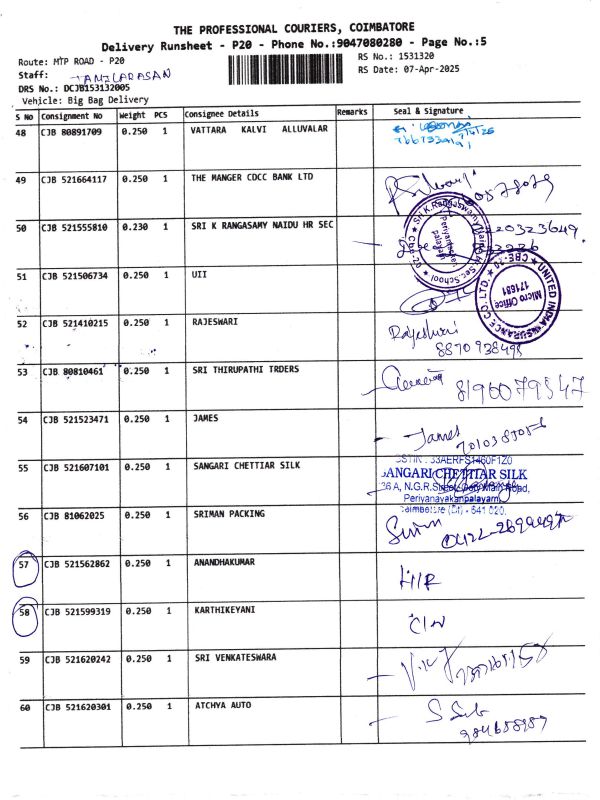 THE PROFESSIONAL COURIERS, COIMBATORE
Delivery Runsheet - P20 - Phone No.:9047080280 - Page No.:5
Route: MTP ROAD - P20
RS No.: 1531320
Staff: TAMILARASAN
RS Date: 07-Apr-2025
DRS No.: DCJB153132005
Vehicle: Big Bag Delivery
S No Consignment No Weight PCS Consignee Details Remarks Seal & Signature
48 CJB 80891709 0.250 1 VATTARA KALVI ALLUVALAR
49 CJB 521664117 0.250 1 THE MANGER CDCC BANK LTD
50 CJB 521555810 0.230 1 SRI K RANGASAMY NAIDU HR SEC
Periyanaicken palayam
51 CJB 521506734 0.250 1 UII
UNITED INDIA INSURANCE CO. LTD. CBE-20
Micro Office
171681
52 CJB 521410215 0.250 1 RAJESWARI Rajeshwari
53 CJB 80810461 0.250 1 SRI THIRUPATHI TRDERS 8190079547
54 CJB 521523471 0.250 1 JAMES James
55 CJB 521607101 0.250 1 SANGARI CHETTIAR SILK
GSTIN : 33AERFS1460F1Z0
SANGARI CHETTIAR SILK
36 A, N.G.R. Street, Main Road,
Periyanayakanpalayam,
Coimbatore (Dt) - 641 020.
56 CJB 81062025 0.250 1 SRIMAN PACKING
57 CJB 521562862 0.250 1 ANANDHAKUMAR
58 CJB 521599319 0.250 1 KARTHIKEYANI
59 CJB 521620242 0.250 1 SRI VENKATESWARA
60 CJB 521620301 0.250 1 ATCHYA AUTO